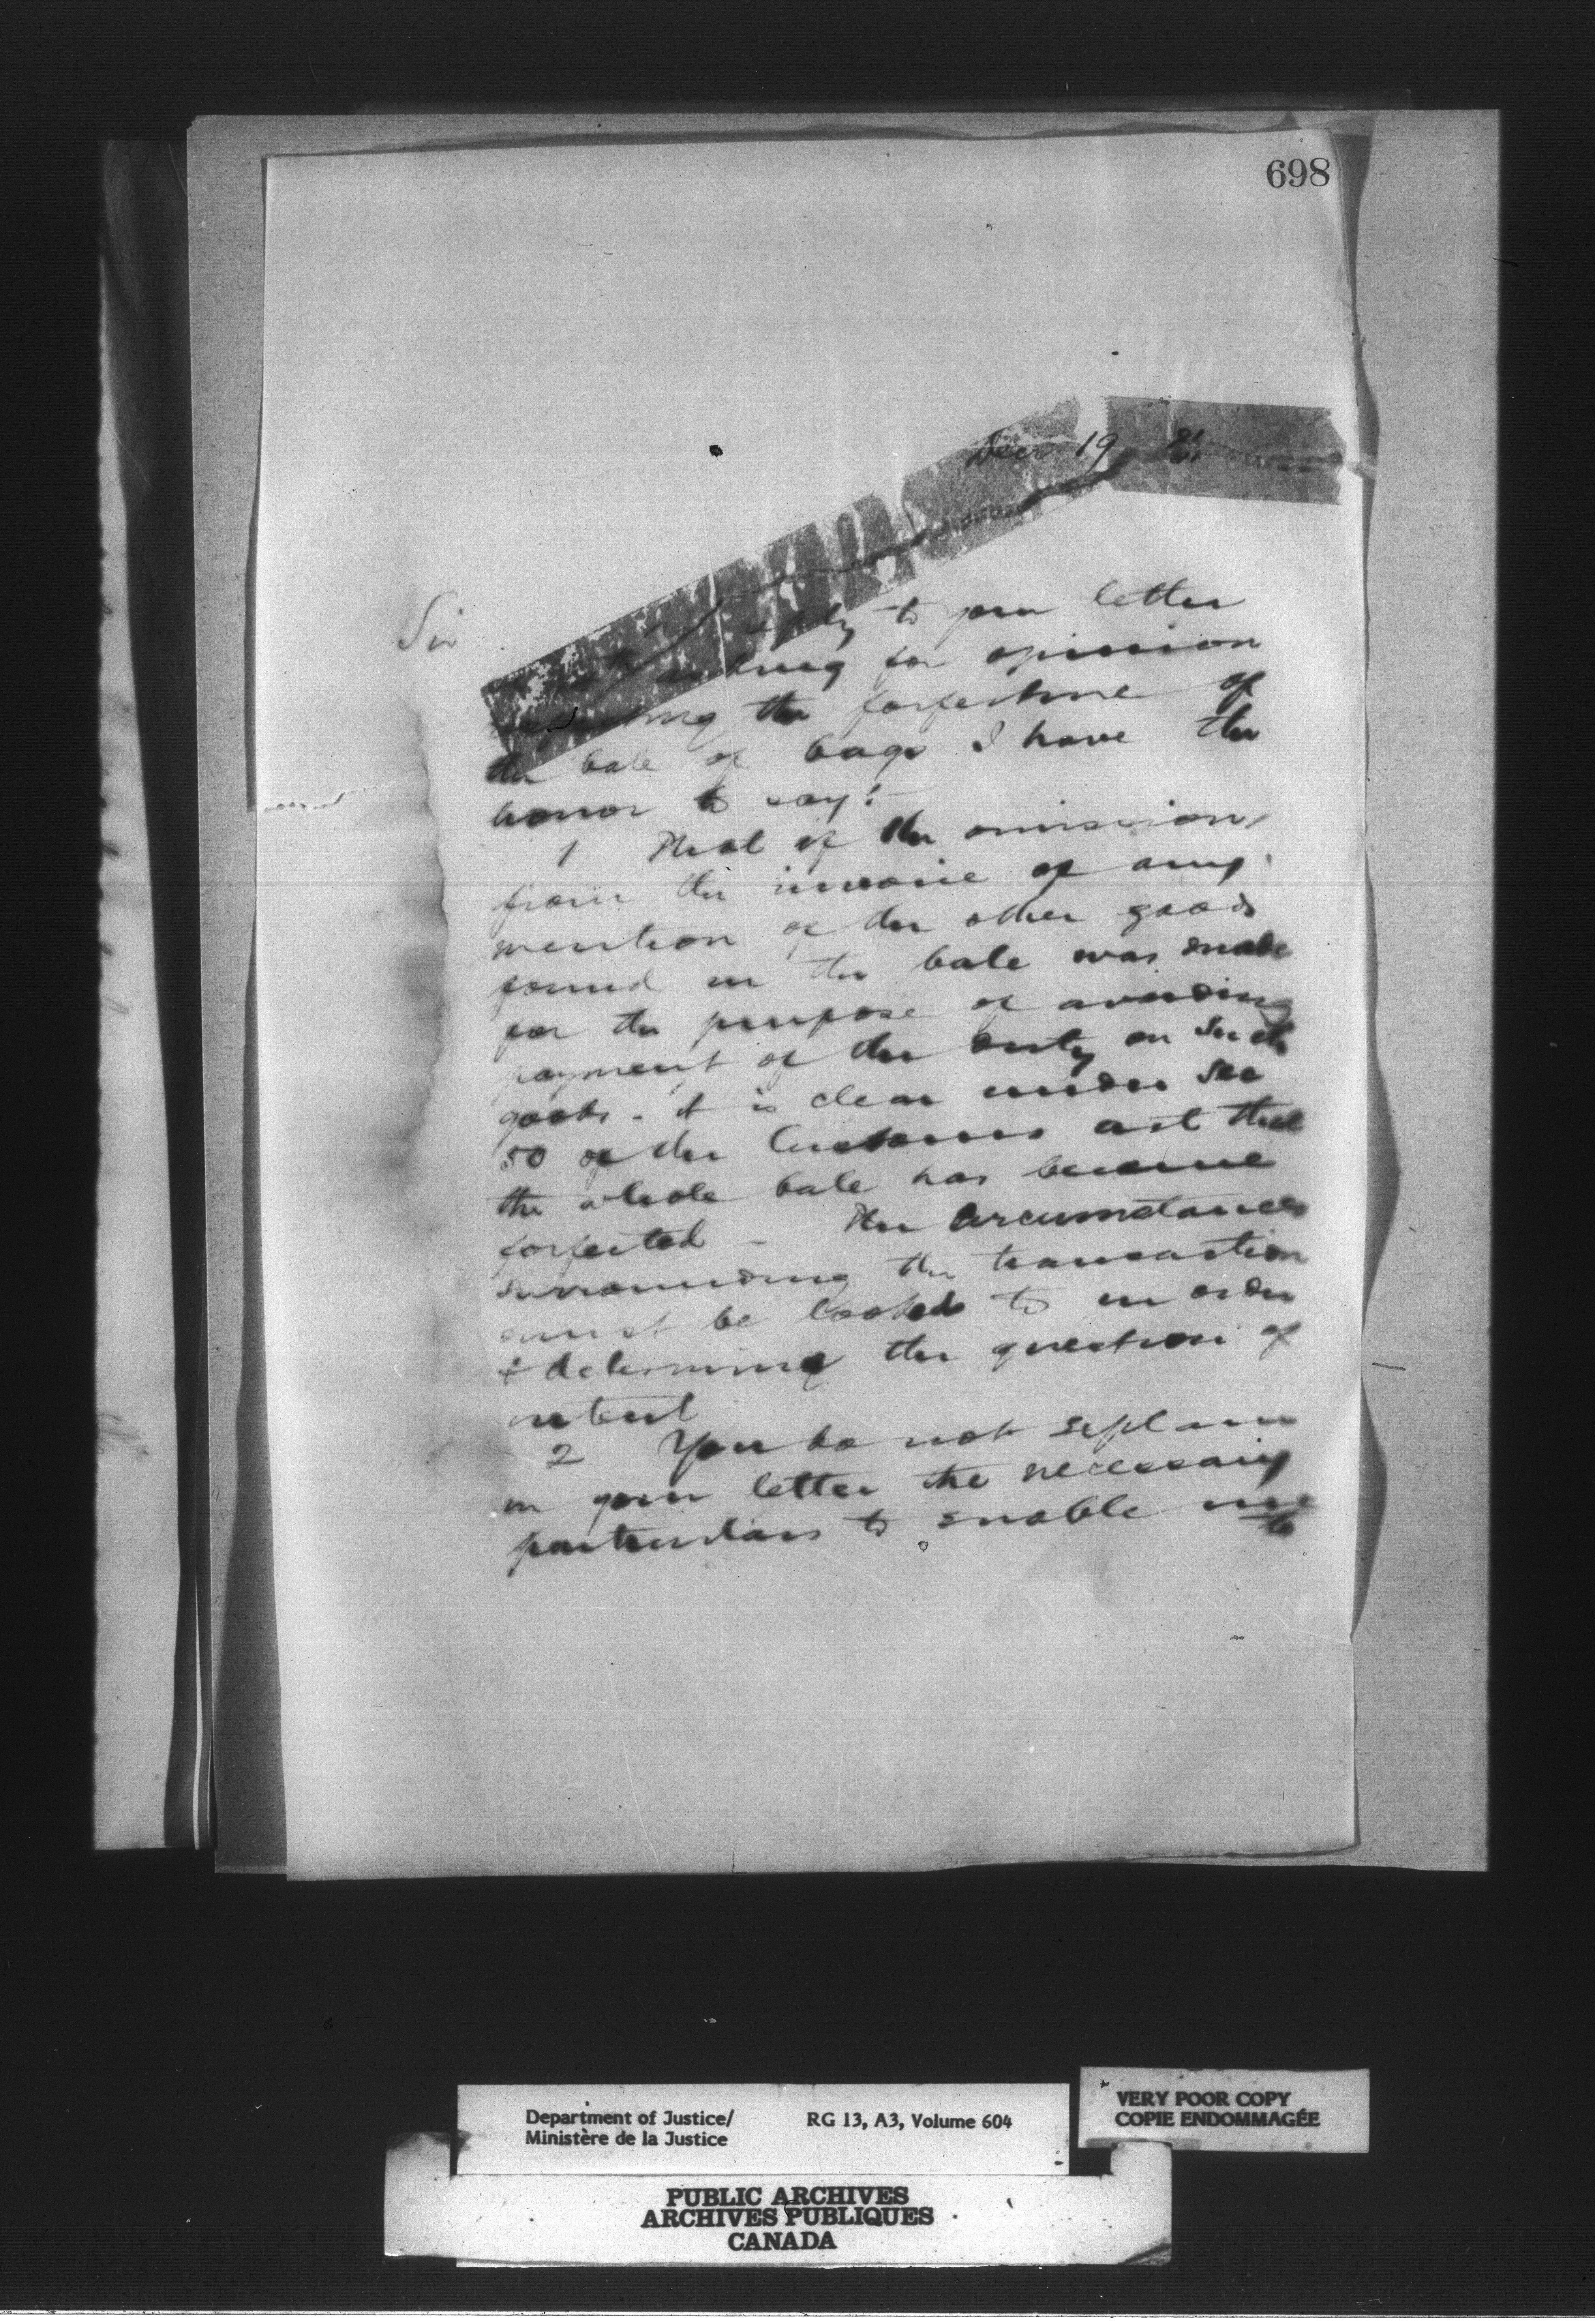 698
Decr 19 81
Sir
reply to your letter
asking for opinion
respecting the forfeiture of
the bale of bags I have the
honor to say:-
1 That if the omission
from the invoice of any
mention of the other goods
found in the bale was made
for the purpose of avoiding
payment of the duty on such
goods - it is clear under Sec
50 of the Customs act that
the whole bale has become
forfeited - The circumstances
surrounding the transaction
must be looked to in order
to determine the question of
intent
2 You do not explain
in your letter the necessary
particulars to enable me
to
Department of Justice/ RG 13, A3, Volume 604
Ministère de la Justice
VERY POOR COPY
COPIE ENDOMMAGÉE
PUBLIC ARCHIVES
ARCHIVES PUBLIQUES
CANADA